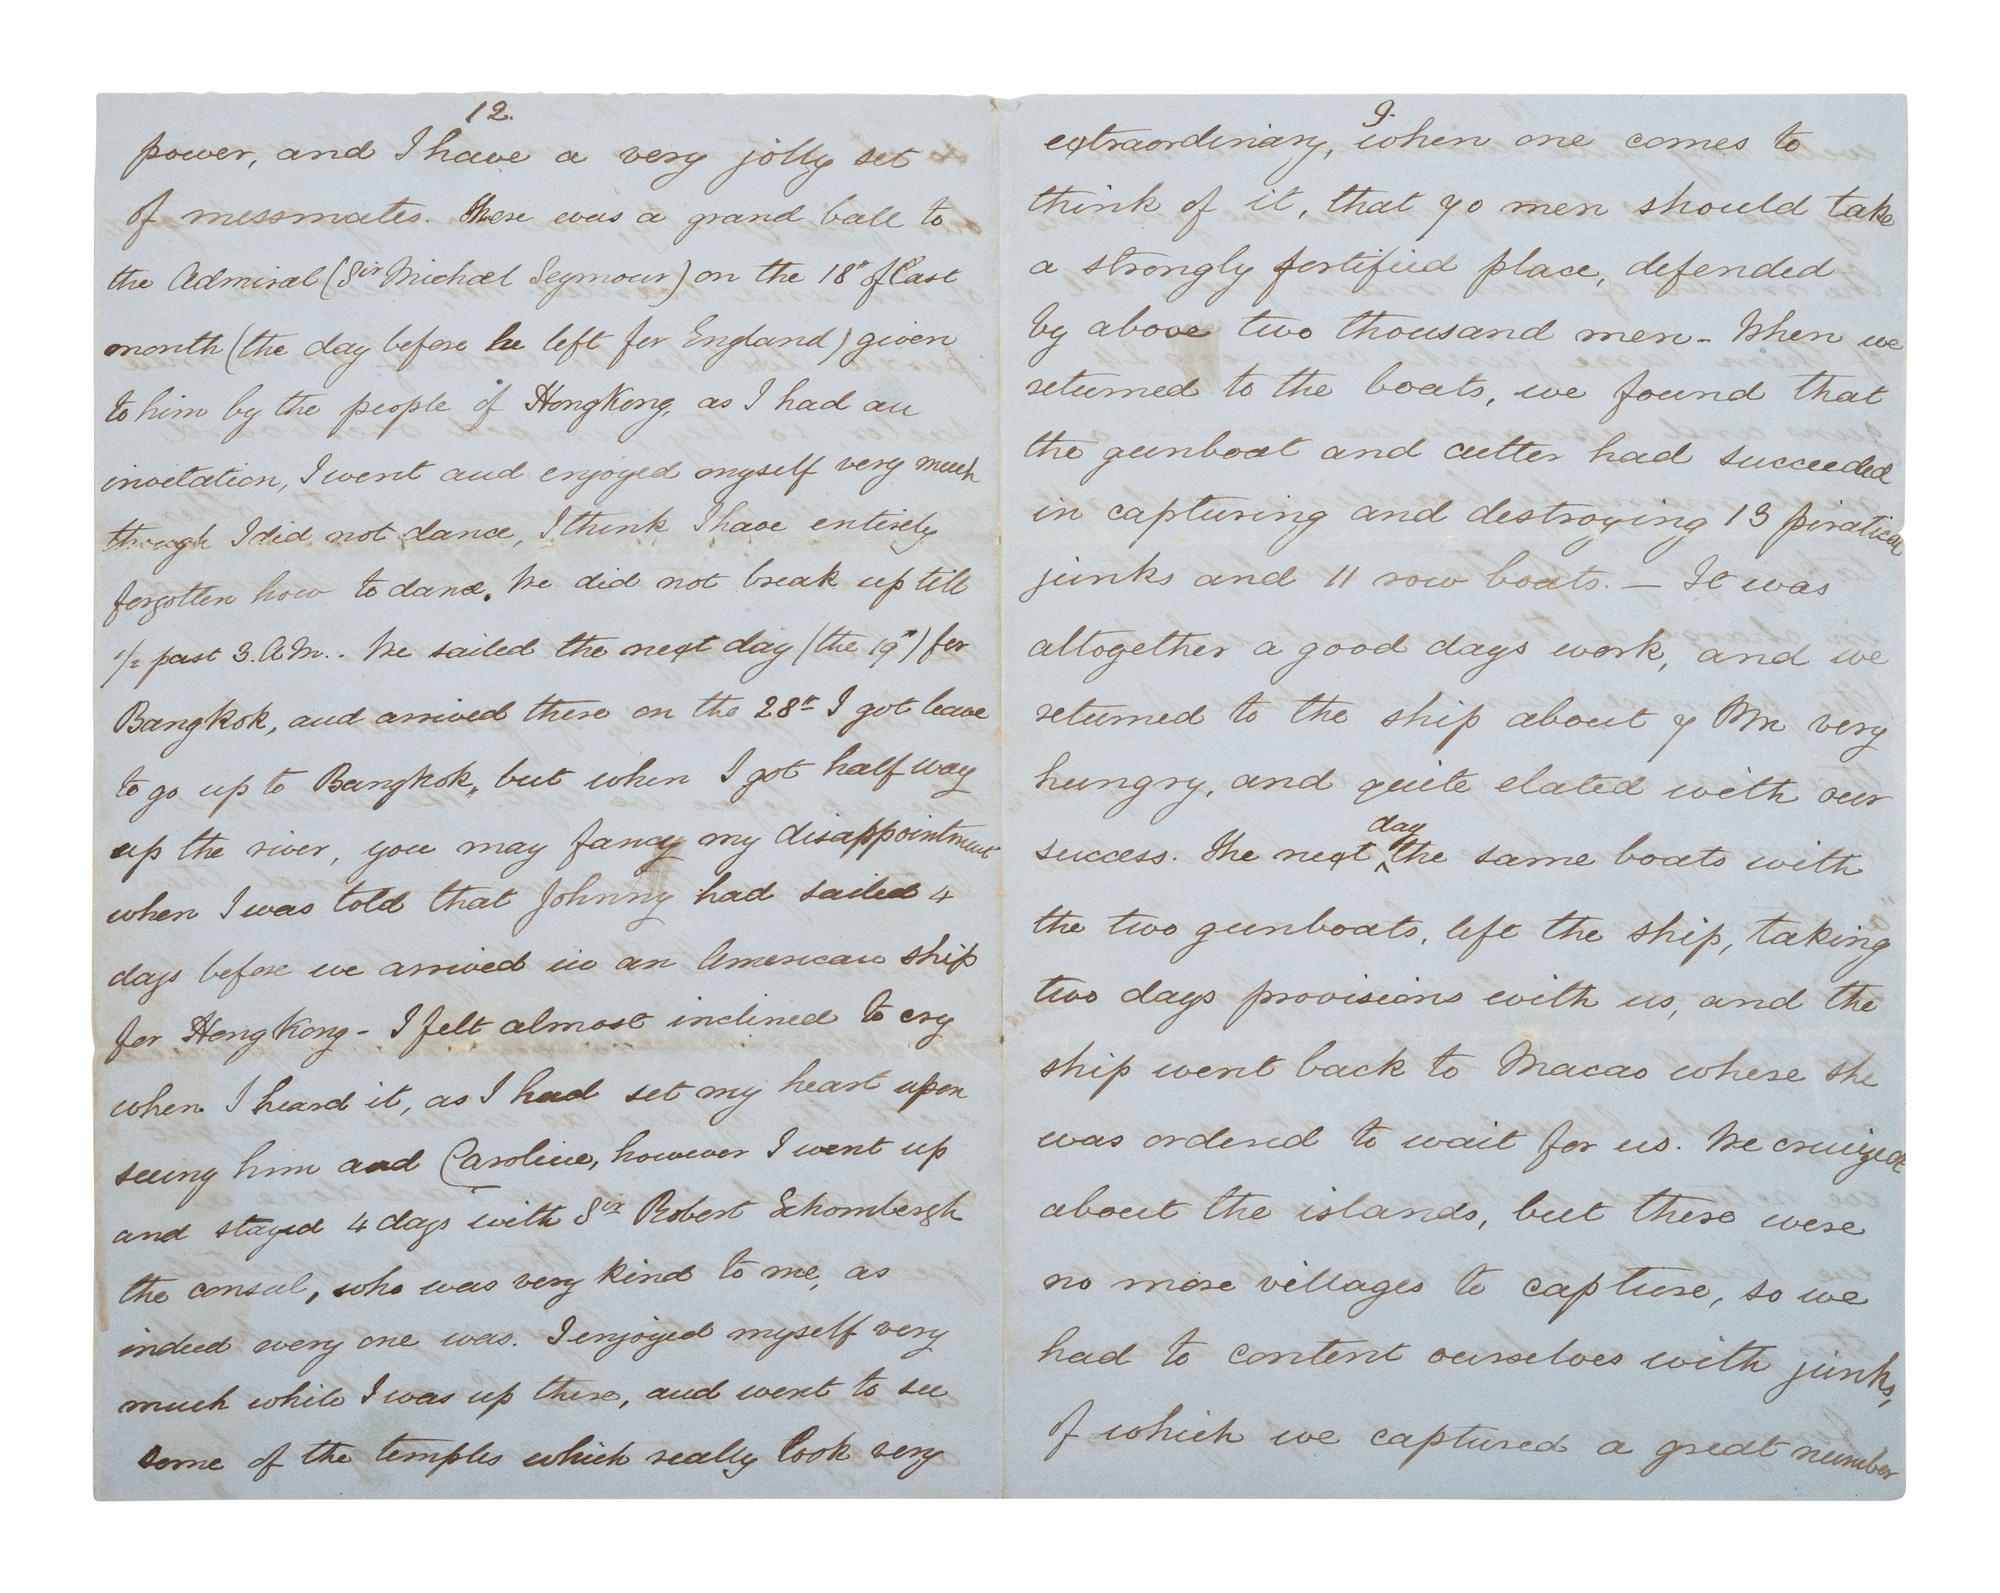 12.
power, and I have a very jolly set
of messmates. There was a grand ball to
the Admiral (Sir Michael Seymour) on the 18th of last
month (the day before he left for England) given
to him by the people of HongKong, as I had an
invitation, I went and enjoyed myself very much
though I did not dance, I think I have entirely
forgotten how to dance. We did not break up till
1/2 past 3. A.M.. We sailed the next day (the 19th) for
Bangkok, and arrived there on the 28th I got leave
to go up to Bangkok, but when I got half way
up the river, you may fancy my disappointment
when I was told that Johnny had sailed 4
days before we arrived in an American ship
for HongKong - I felt almost inclined to cry
when I heard it, as I had set my heart upon
seeing him and Caroline, however I went up
and stayed 4 days with Sir Robert Schombergh
the consul, who was very kind to me, as
indeed every one was. I enjoyed myself very
much while I was up there, and went to see
some of the temples which really look very
9.
extraordinary, when one comes to
think of it, that 70 men should take
a strongly fortified place, defended
by above two thousand men - When we
returned to the boats, we found that
the gunboat and cutter had succeeded
in capturing and destroying 13 piratical
junks and 11 row boats. — It was
altogether a good days work, and we
returned to the ship about 7 PM very
hungry, and quite elated with our
success. The next day the same boats with
the two gunboats, left the ship, taking
two days provisions with us, and the
ship went back to Macao where she
was ordered to wait for us. We cruized
about the islands, but there were
no more villages to capture, so we
had to content ourselves with junks,
of which we captured a great number